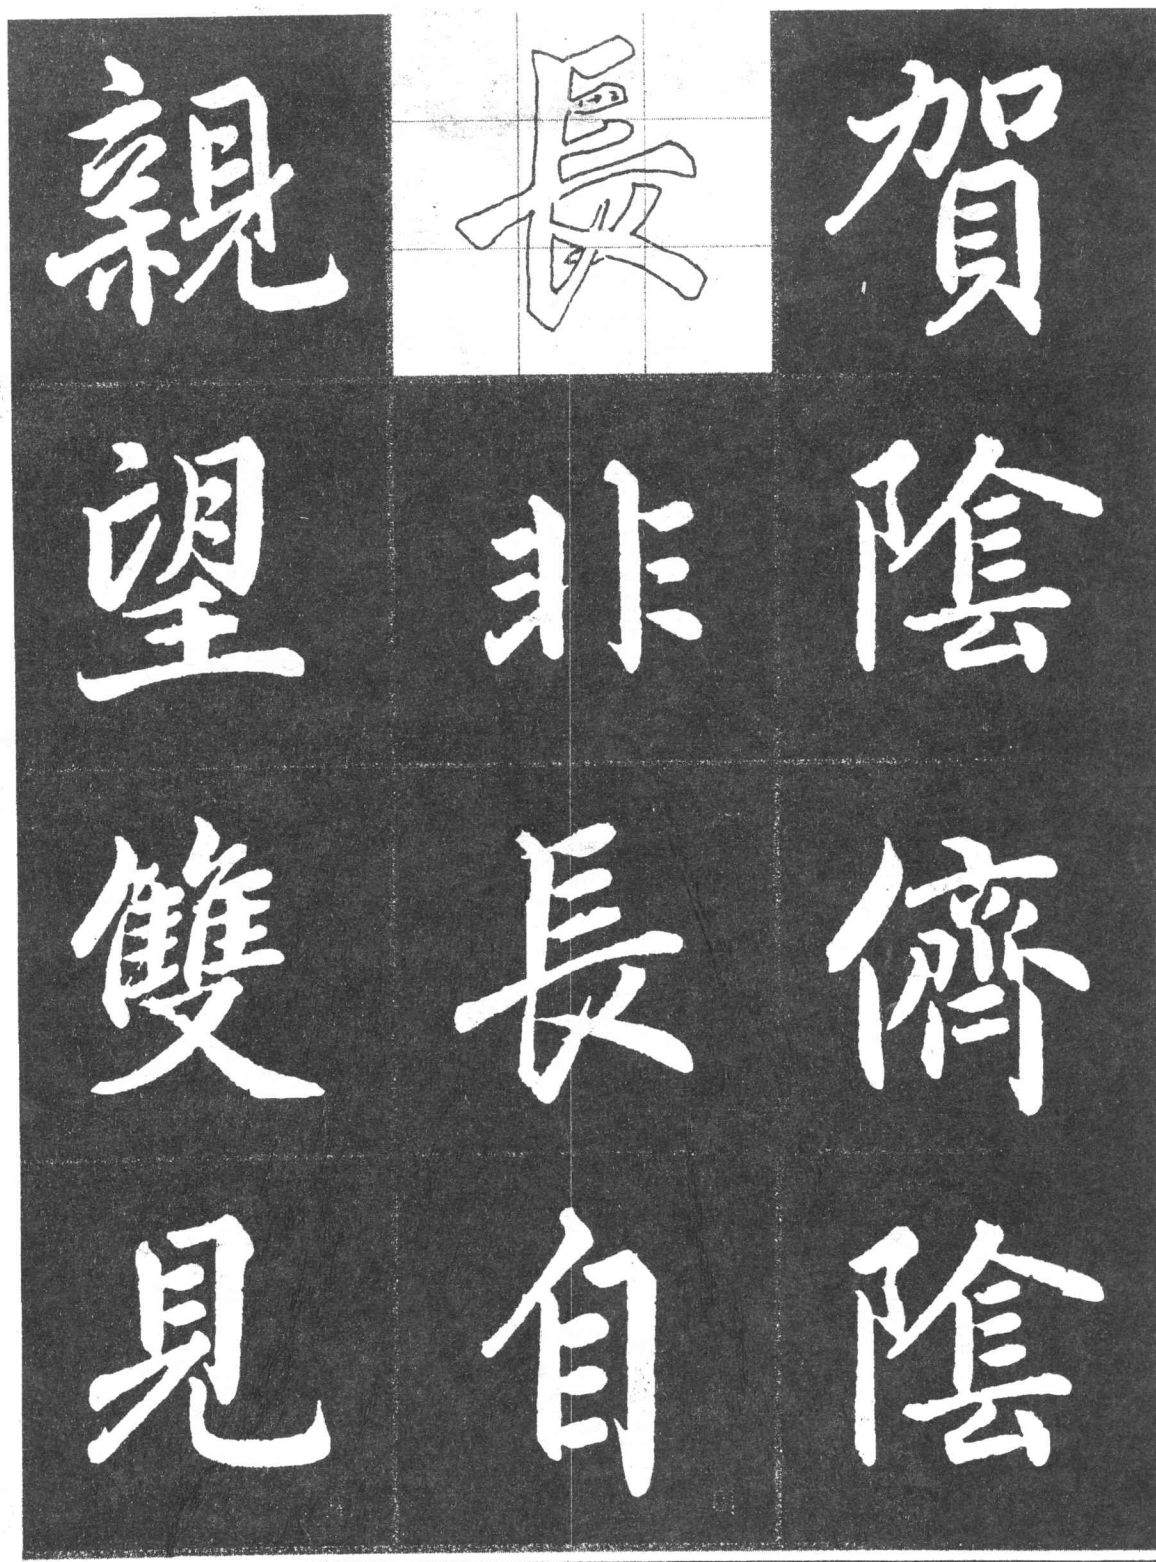 賀陰儕陰
長非長自
親望雙見